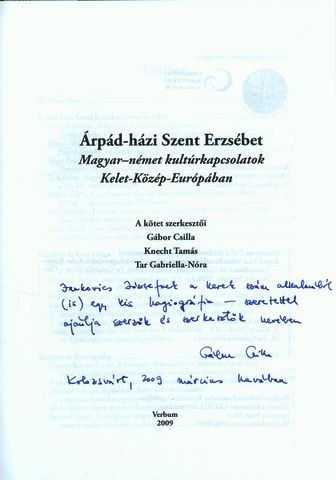 Árpád-házi Szent Erzsébet
Magyar–német kultúrkapcsolatok
Kelet-Közép-Európában
A kötet szerkesztői
Gábor Csilla
Knecht Tamás
Tar Gabriella-Nóra
Jankovics Józsefnek a kerek szám alkalmából
(is) egy kis hagiográfia – szeretettel
ajánlja szerzők és szerkesztők nevében
Gábor Csilla
Kolozsvárt, 2009 március havában
Verbum
2009